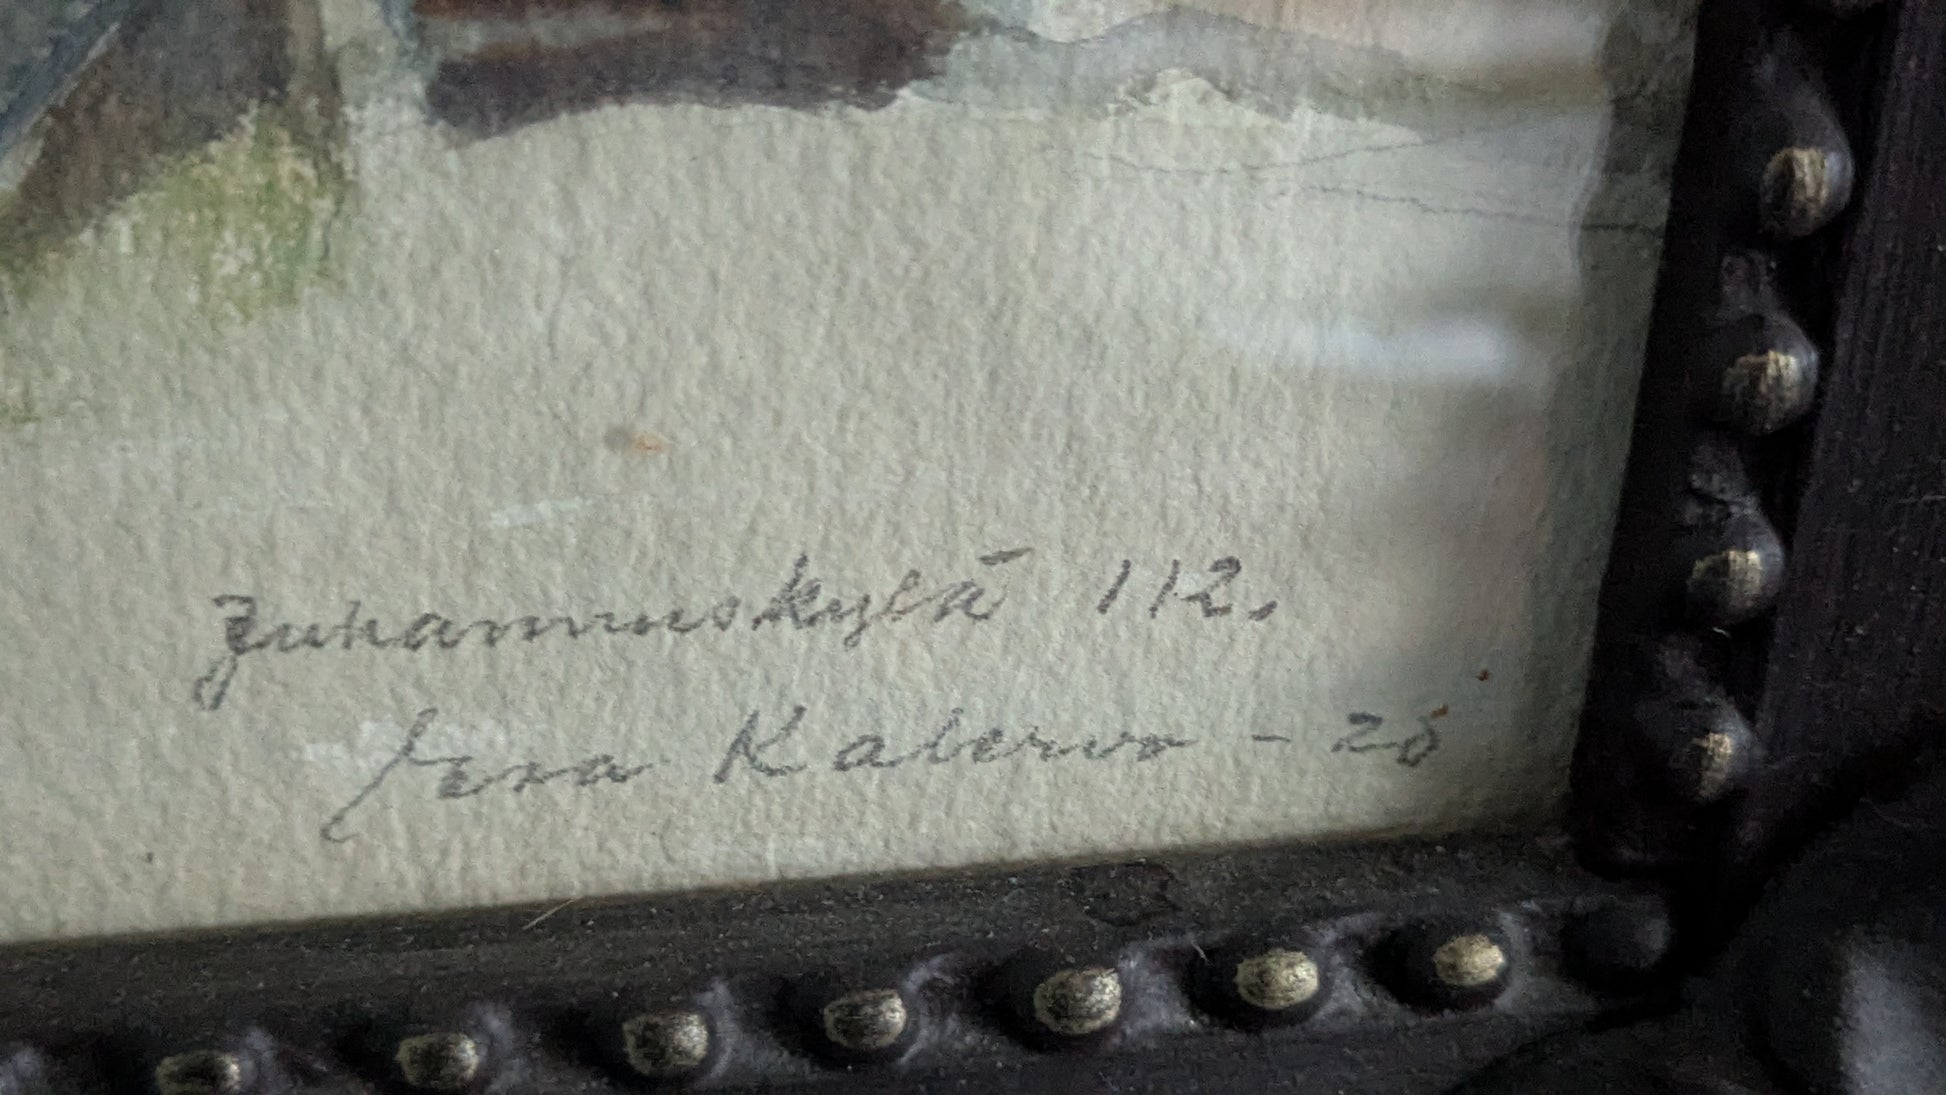 Juhannuskylä 112.
Kalervo - 28